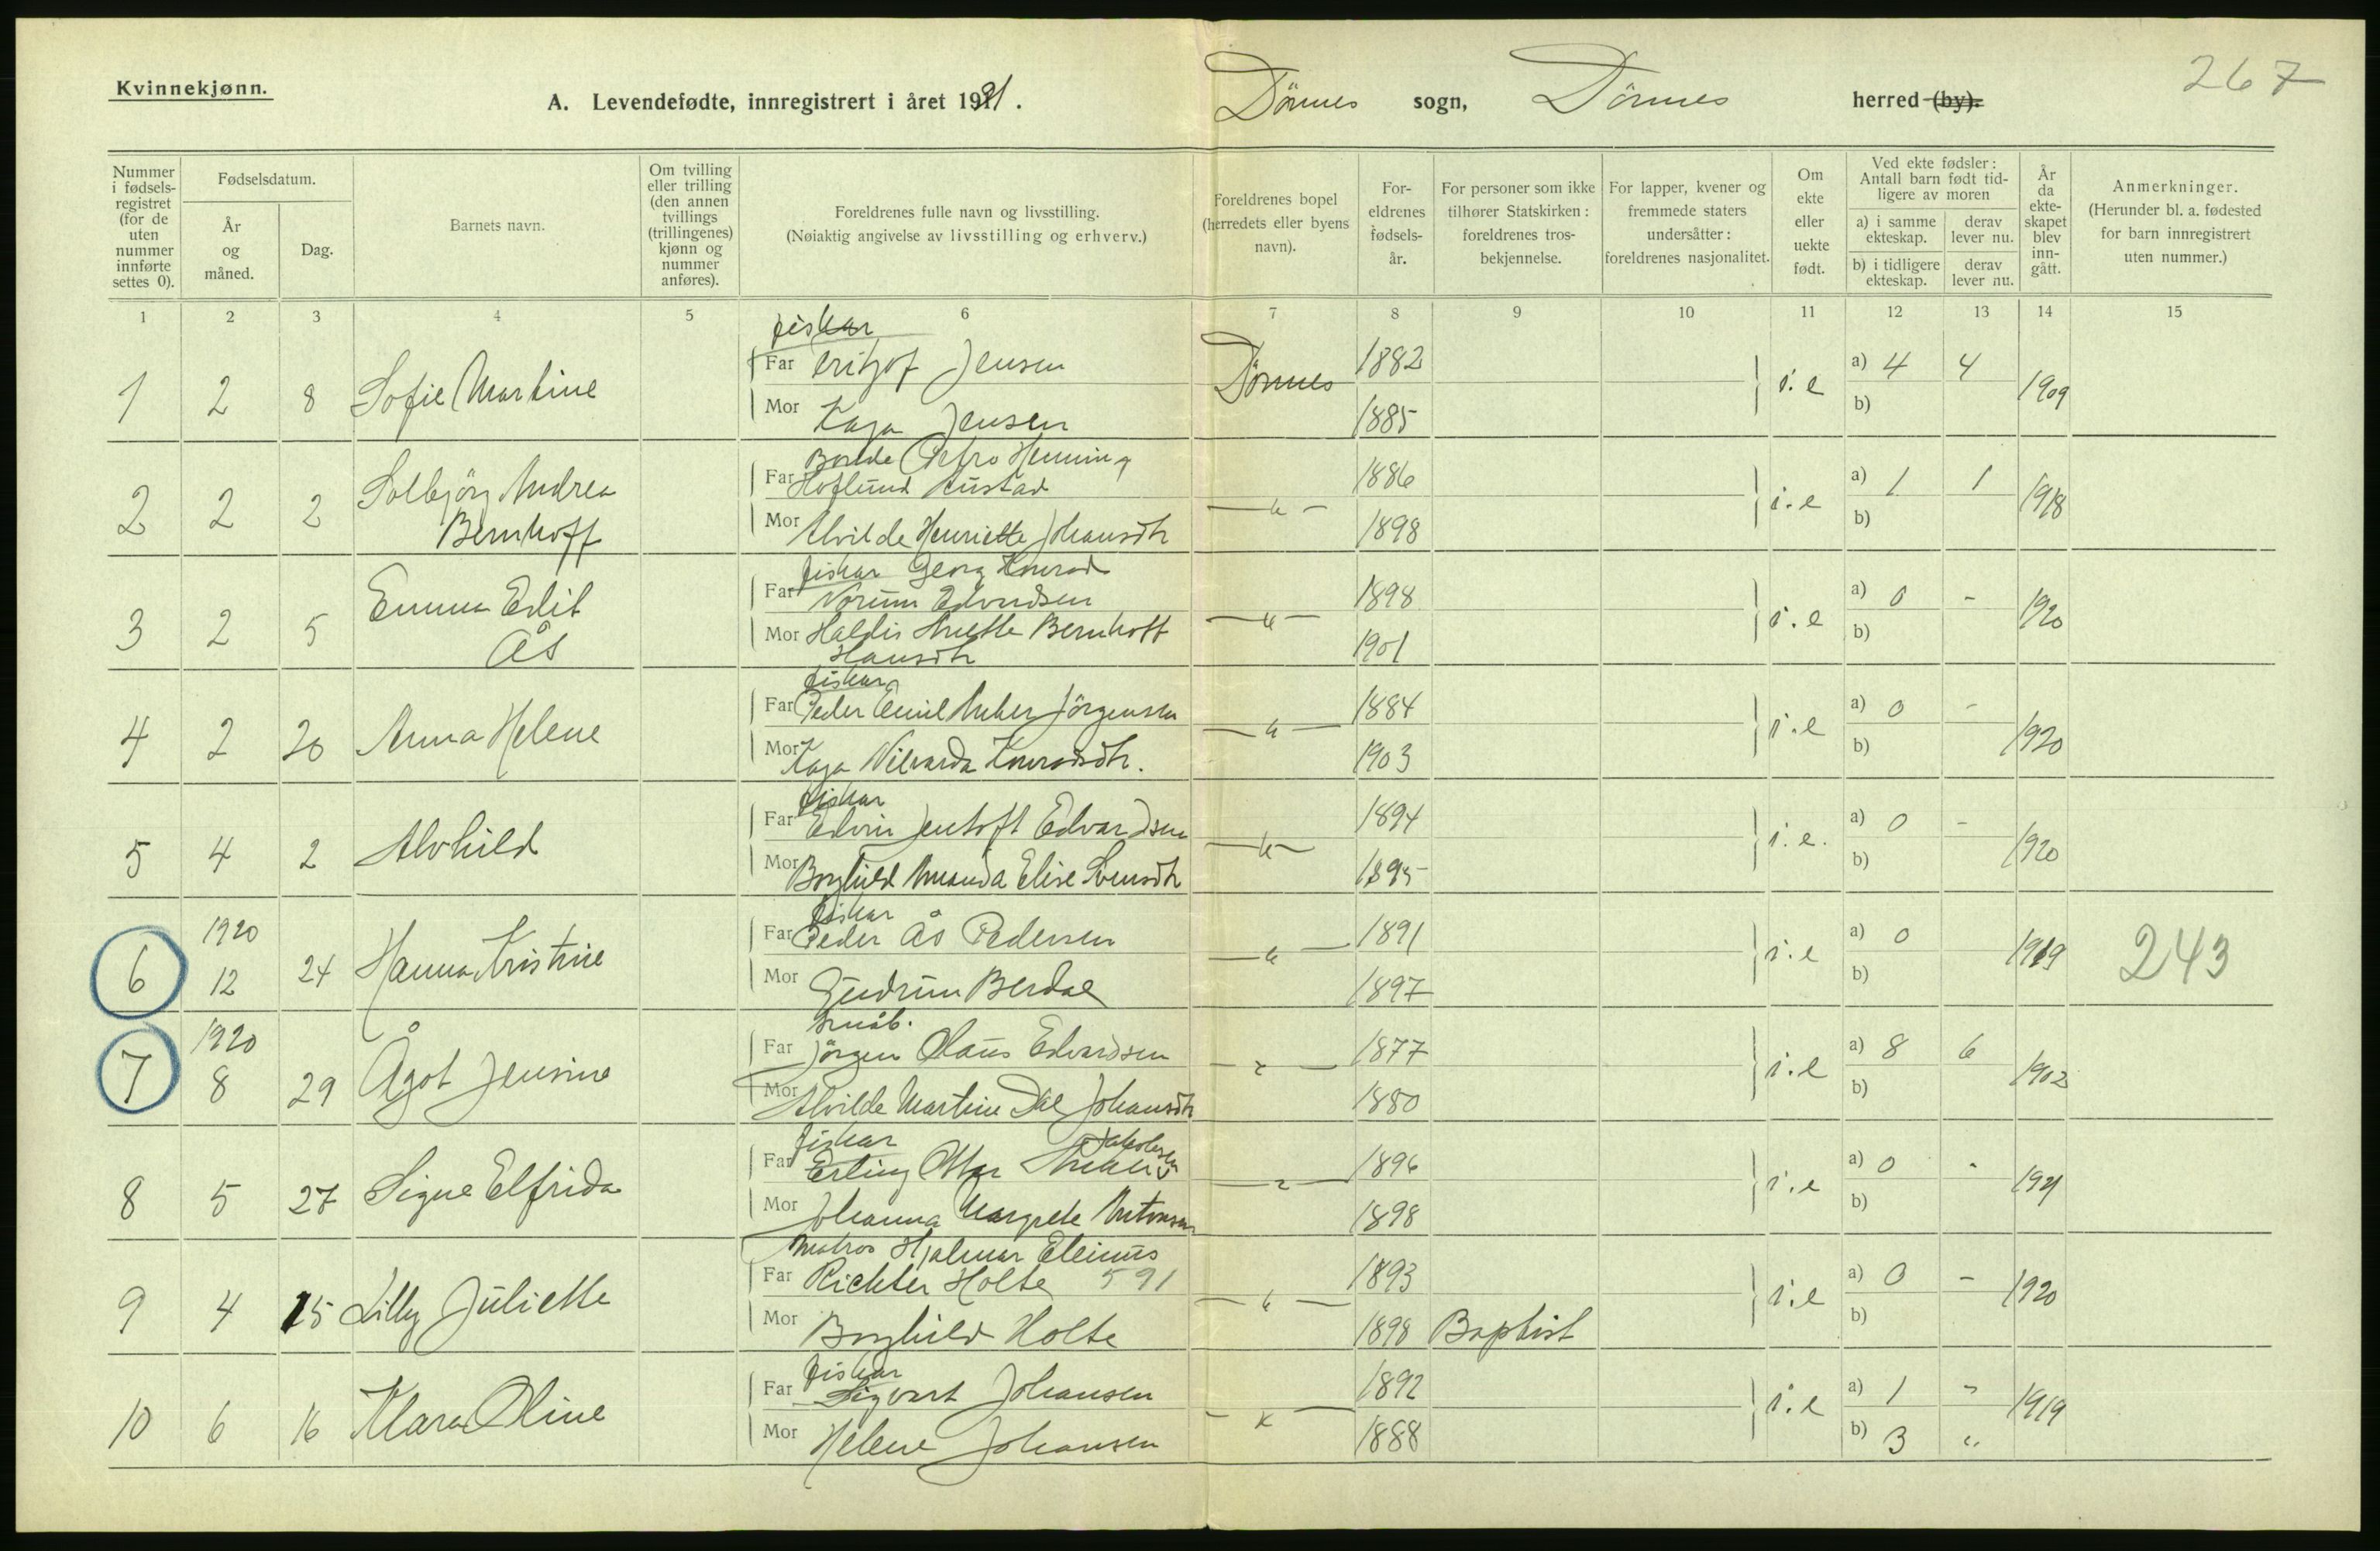 267
Kvinnekjønn.
A. Levendefødte, innregistrert i året 1921.
Dönnes sogn, Dönnes herred (by).
Nummer i fødsels-registret (for de uten nummer innførte settes 0).
Fødselsdatum.
År og måned.
Dag.
Barnets navn.
Om tvilling eller trilling (den annen tvillings (trillingenes) kjønn og nummer anføres).
Foreldrenes fulle navn og livsstilling.
(Nøiaktig angivelse av livsstilling og erhverv.)
Foreldrenes bopel (herredets eller byens navn).
For-eldrenes fødsels-år.
For personer som ikke tilhører Statskirken: foreldrenes tros-bekjennelse.
For lapper, kvener og fremmede staters undersåtter: foreldrenes nasjonalitet.
Om ekte eller uekte født.
Ved ekte fødsler: Antall barn født tid-ligere av moren
a) i samme ekteskap. derav lever nu.
b) i tidligere ekteskap. derav lever nu.
År da ekte-skapet blev inn-gått.
Anmerkninger.
(Herunder bl. a. fødested for barn innregistrert uten nummer.)
1 2 3 4 5 6 7 8 9 10 11 12 13 14 15
fiskar
1 2 8 Sofie Martine Far Fritjof Jensen Dönnes 1882 i. e a) 4 4 1909
Mor Kaja Jensen 1885 b)
Bonde Petro Henning
2 2 2 Solbjörg Andrea Far Hoflund Rustad 1886 i. e a) 1 1 1918
Bernhoff Mor Alvilde Henriette Johansdtr 1898 b)
fiskar Georg Konrad
3 2 5 Emma Edit Far Norum Edvardsen 1898 i. e a) 0 - 1920
Ås Mor Haldis Anette Bernhoff 1901 b)
Hansdtr
fiskar
4 2 20 Anna Helene Far Peder Emil Anker Jörgensen 1884 i. e a) 0 - 1920
Mor Kaja Vilvarda Konradsdtr. 1903 b)
fiskar
5 4 2 Alvhild Far Edvin Jentoft Edvardsen 1894 i. e. a) 0 - 1920
Mor Borghild Amanda Elise Svensdtr 1895 b)
fiskar
6 1920 12 24 Hanna Kristine Far Peder Ås Pedersen 1891 i. e a) 0 1919 243
Mor Gudrun Berdal 1897 b)
småb.
7 1920 8 29 Ågot Jensine Far Jörgen Olaus Edvardsen 1877 i. e a) 8 6 1902
Mor Alvilde Martine Dal Johansdtr 1880 b)
fiskar Jakobsen
8 5 27 Signe Elfrida Far Erling Ottar Anker 1896 i. e a) 0 - 1921
Mor Johanna Margrete Antonsen 1898 b)
Matros Hjalmar Elinius
9 4 15 Lilly Juliette Far Richter Holte 591 1893 i. e a) 0 - 1920
Mor Borghild Holte 1898 Baptist b)
fiskar
10 6 16 Klara Oline Far Sigvart Johansen 1892 i. e a) 1 " 1919
Mor Helene Johansen 1888 b) 3 "